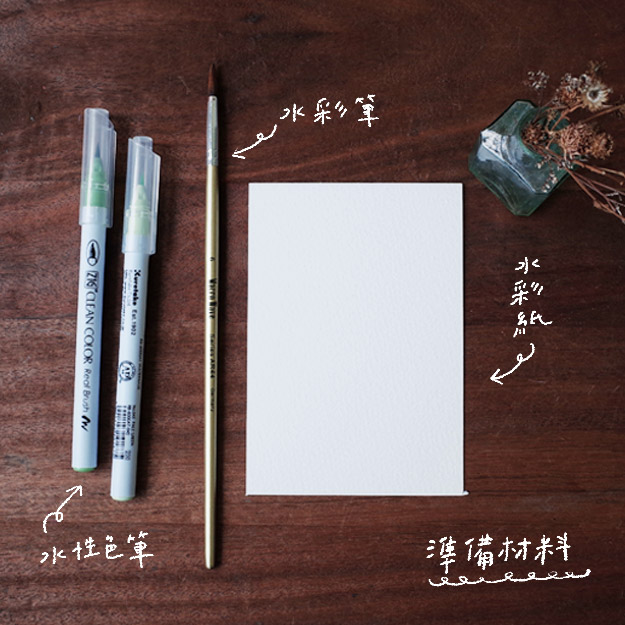 水彩筆
水彩紙
水性色筆
準備材料
ZIG CLEAN COLOR Real Brush
Kuretake Est.1902